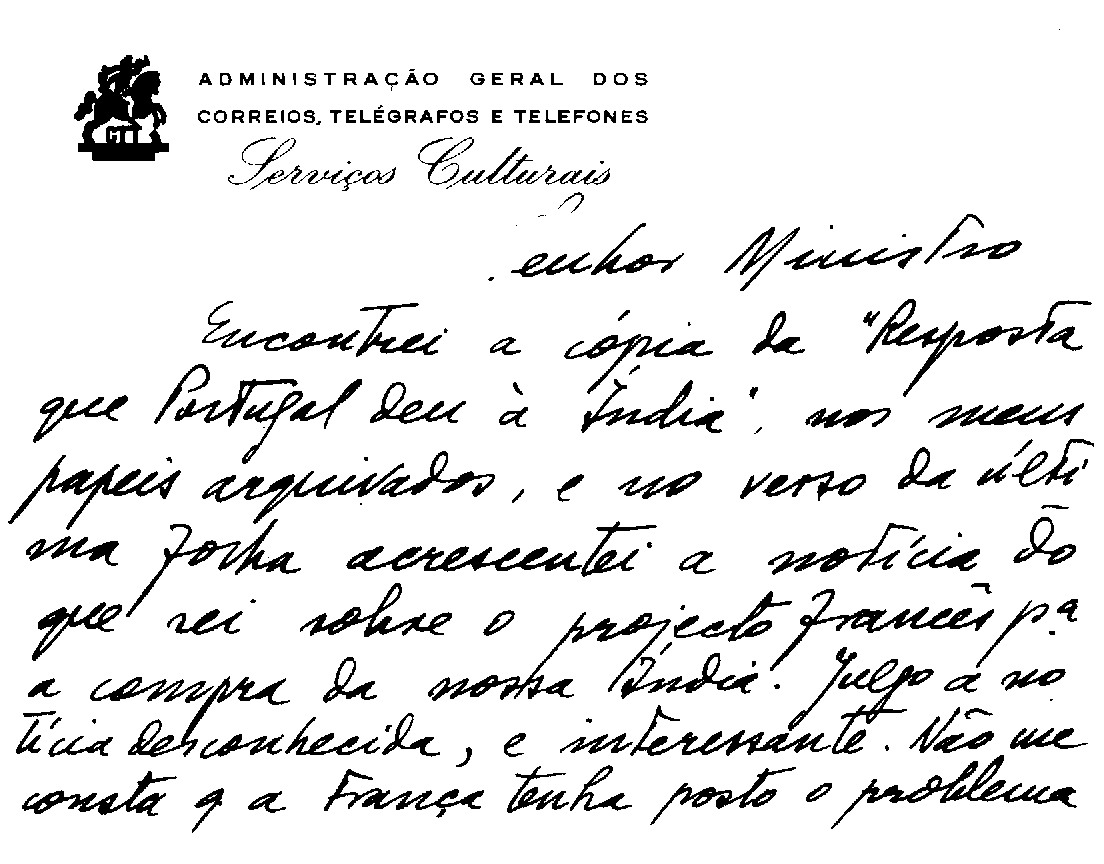 CTT
ADMINISTRAÇÃO GERAL DOS
CORREIOS, TELÉGRAFOS E TELEFONES
Serviços Culturais
Senhor Ministro
Encontrei a cópia da "Resposta
que Portugal deu à Índia", nos meus
papeis arquivados, e no verso da últi
ma folha acrescentei a notícia do
que sei sobre o projecto francês pª
a compra da nossa Índia. Julgo a no
tícia desconhecida, e interessante. Não me
consta q a França tenha posto o problema